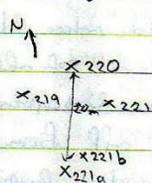 N
X 220
X 219
20m
X 221
X 221b
X 221a